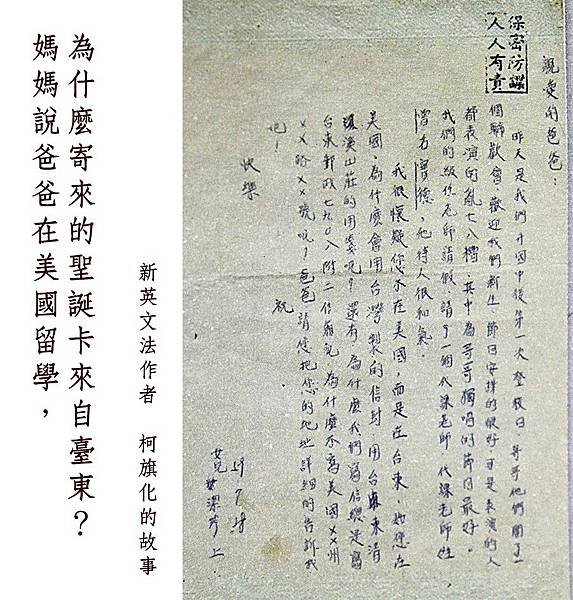 媽媽說爸爸在美國留學，
為什麼寄來的聖誕卡來自臺東？
新英文法作者 柯旗化的故事
保密防諜
人人有責
親愛的爸爸：
昨天是我們升國中後第一次登校日，哥哥他們開了一
個歡會，歡迎我們新生，節目安排的很好，可是表演的人
都表演的亂七八糟，其中為哥哥獨唱的節目最好。
我們的級任老師請假，請了一個代課老師，代課老師姓
曾名實德，他待人很和氣。
我很懷疑您不在美國，而是在台東，如您在
美國，為什麼會用台灣製的信封，用台東清
溪山莊的用箋呢？還有，為什麼我們寫信總是寫
台東郵政七九〇八附二信箱呢，為什麼不寫美國××州
××路××號呢？爸爸請您把您的地址詳細的告訴我
吧！ 祝
快樂
女兒 潔芳 上
59.7.28